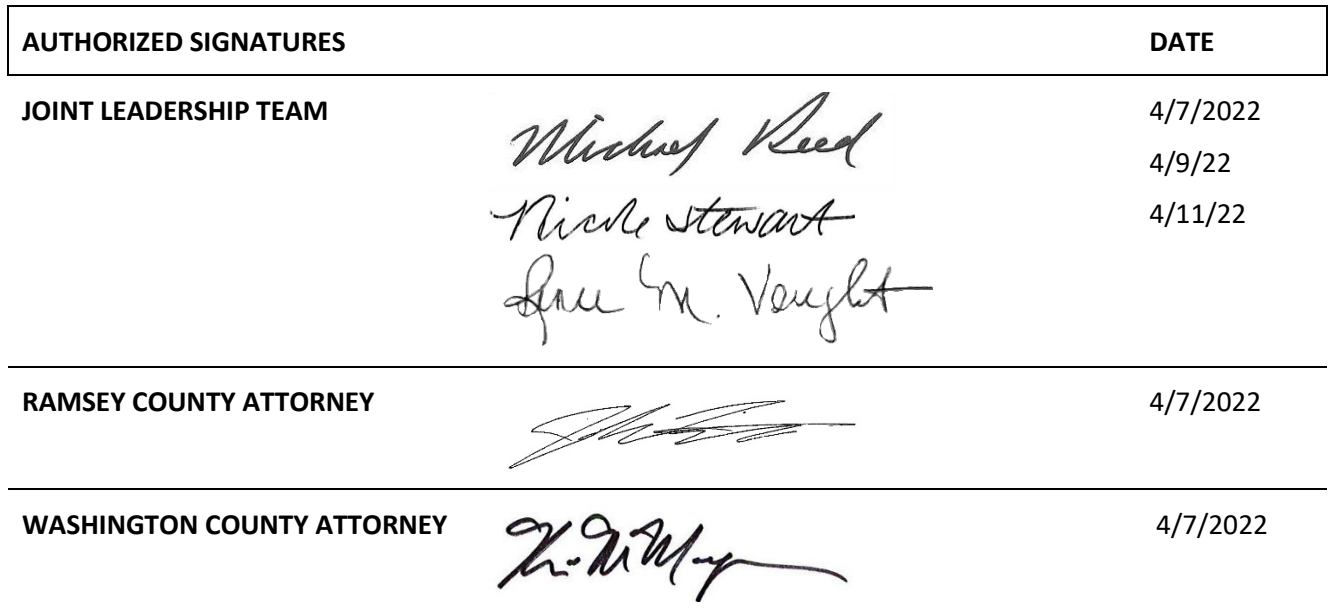 AUTHORIZED SIGNATURES DATE
JOINT LEADERSHIP TEAM Michael Reed 4/7/2022
4/9/22
Nicole Stewart 4/11/22
M. Vaught
RAMSEY COUNTY ATTORNEY 4/7/2022
WASHINGTON COUNTY ATTORNEY 4/7/2022